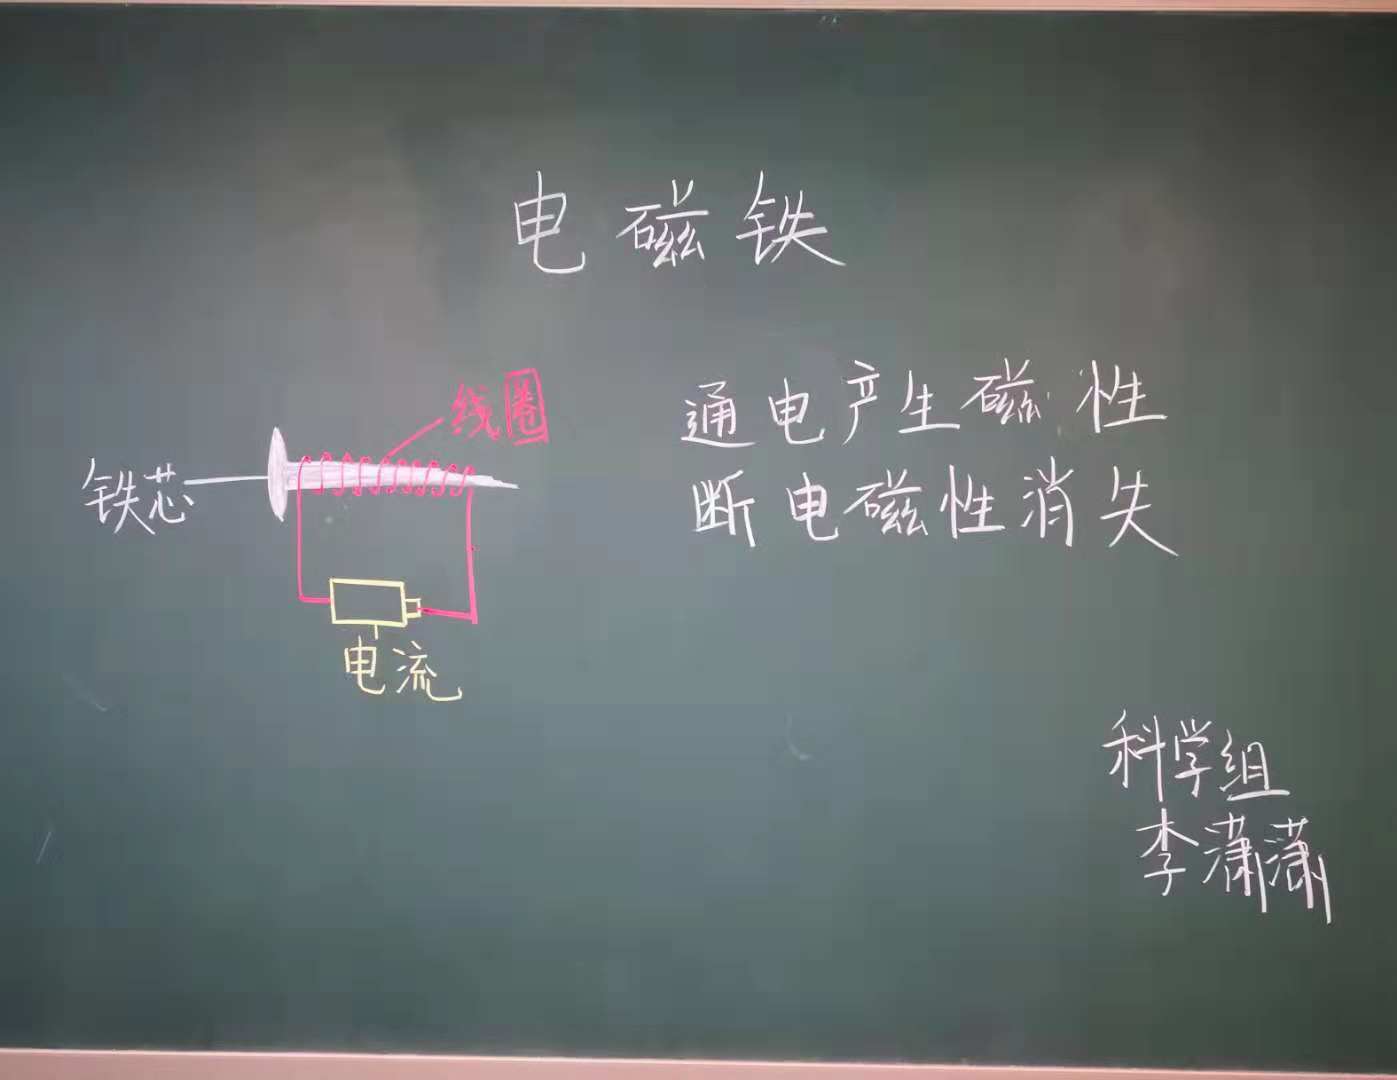 电磁铁
线圈
铁芯
电流
通电产生磁性
断电磁性消失
科学组
李潇潇